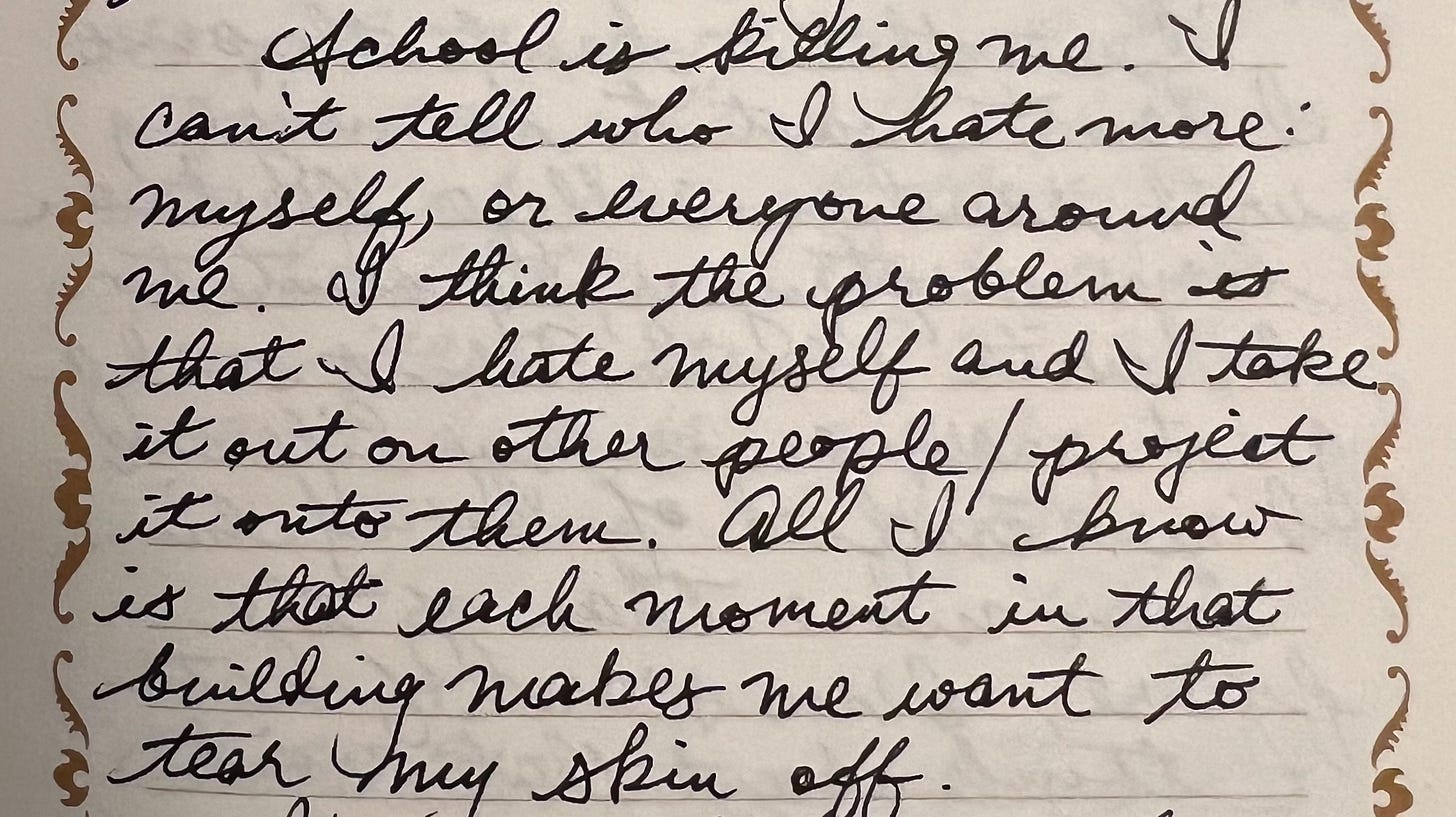 School is killing me. I
can't tell who I hate more:
myself, or everyone around
me. I think the problem is
that I hate myself and I take
it out on other people / project
it onto them. All I know
is that each moment in that
building makes me want to
tear my skin off.